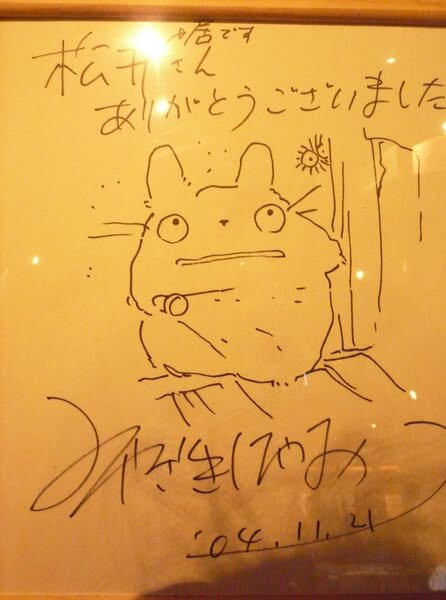 居です
松井さん
ありがとうございました
みやざきはやお
'04.11.21